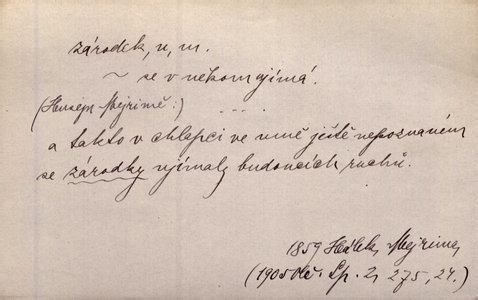 zárodek, u, m.
~ se v někom ujímá.
(Husejn Mejrimě:) ...
a takto v chlapci ve mně ještě nepoznaném
se zárodky ujímaly budoucích ruchů.
1859 Hálek, Mejrima,
(1905 Sp. 2, 275, 24.)